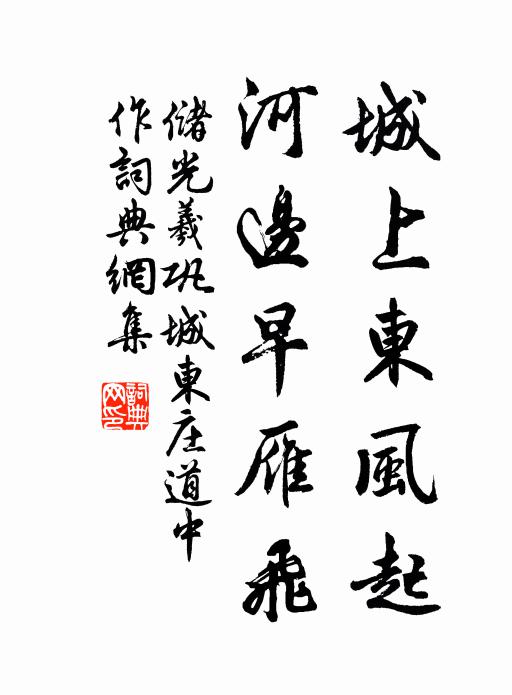 城上東風起
河邊早雁飛
儲光羲巩城東庄道中
作詞典網集
詞典
网印